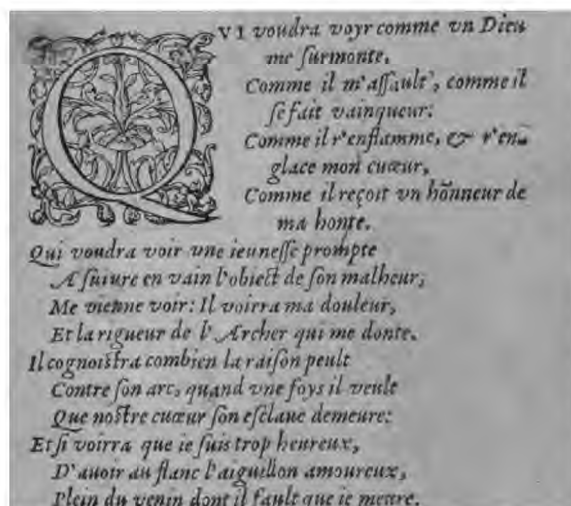 QVI voudra voyr comme vn Dieu
me ſurmonte,
Comme il m'aſſault', comme il
ſe fait vainqueur:
Comme il r'enflamme, & r'en-
glace mon cuœur,
Comme il reçoit vn hõnneur de
ma honte.
Qui voudra voir vne ieuneſſe prompte
A ſuiure en vain l'obiect de ſon malheur,
Me vienne voir: Il voirra ma douleur,
Et la rigueur de l'Archer qui me donte.
Il cognoiſtra combien la raiſon peult
Contre ſon arc, quand vne foys il veult
Que noſtre cuœur ſon eſclaue demeure:
Et ſi voirra que ie ſuis trop heureux,
D'auoir au flanc l'aiguillon amoureux,
Plein du venin dont il fault que ie meure.